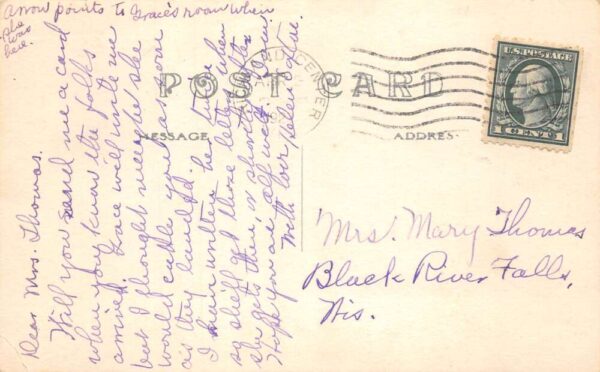 Arrow points to Grace's room when
she
was
here.
POST CARD
MESSAGE
ADDRESS
U.S. POSTAGE
1 CENT 1
Dear Mrs. Thomas.
Will you send me a card
when you know the folks
arrived. Grace will write me
but I thought maybe she
would cable you as soon
as they landed.
I have written her twice
so she'll get those letters when
she gets there, is she'll
Hope you are all well
With love, Helen
Mrs. Mary Thomas
Black River Falls,
Wis.